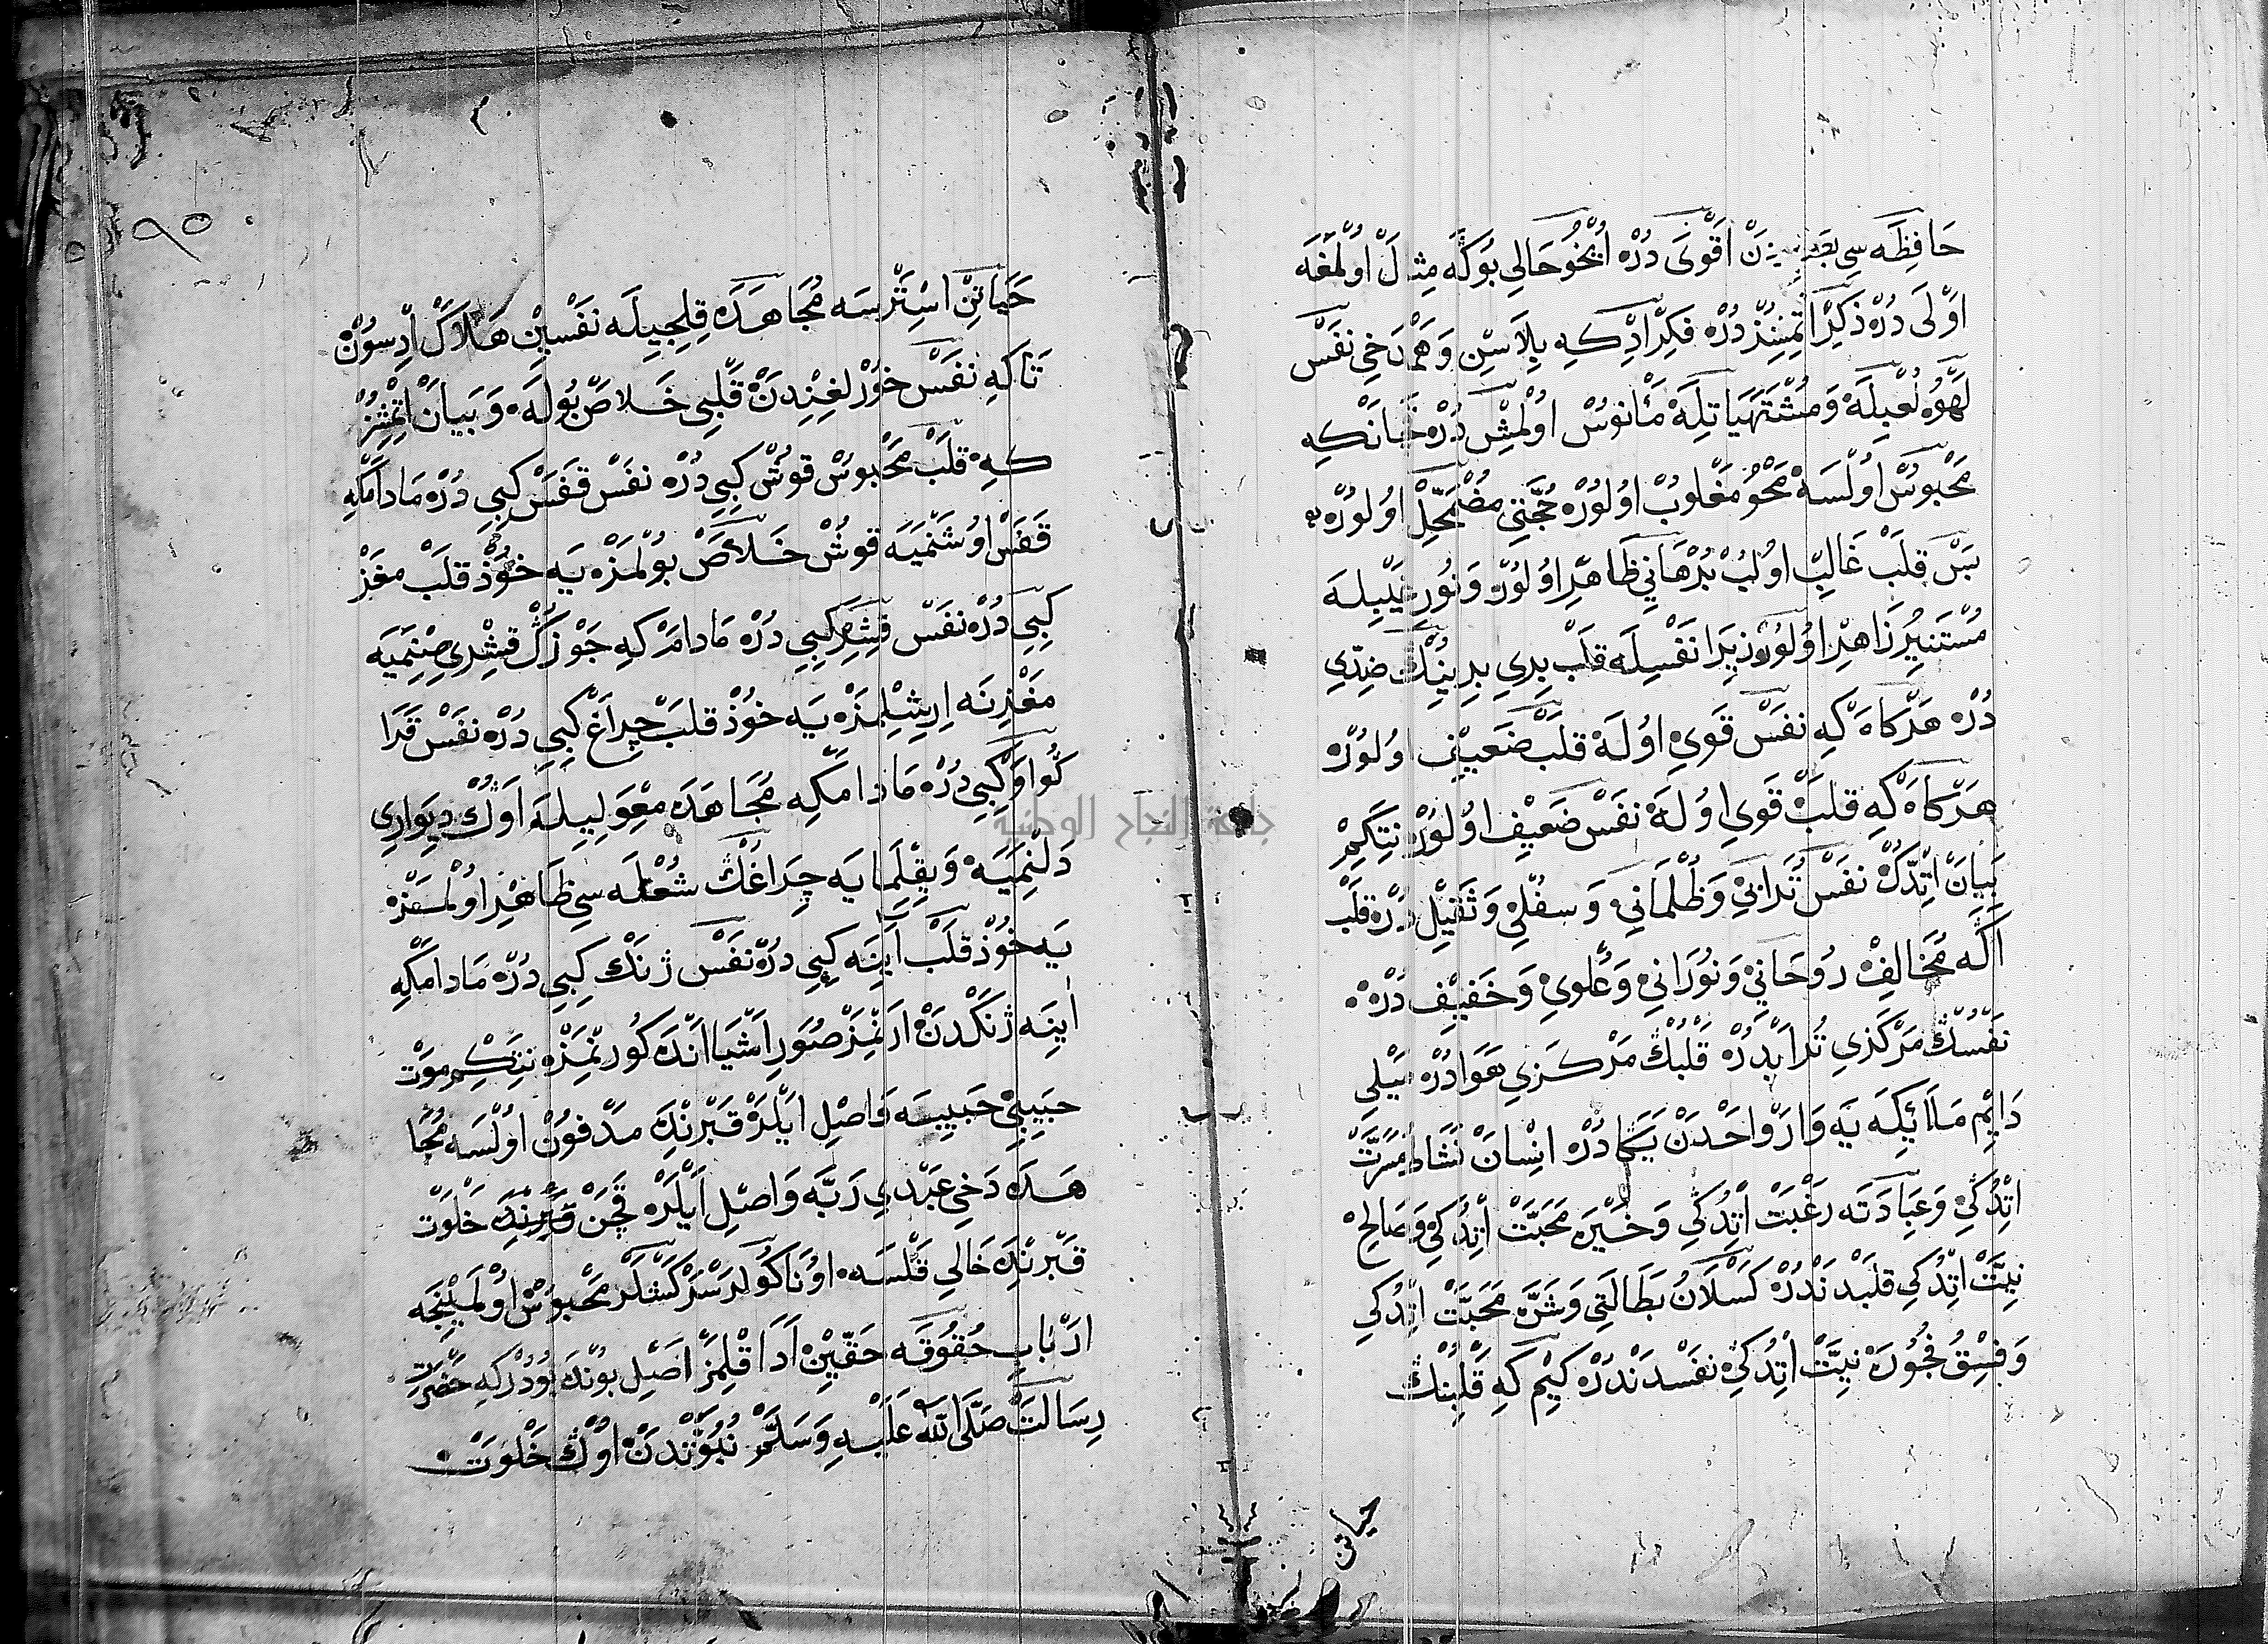 حَافِظَه سِي دَنْ اَقْوَى دُرْ اُيْخُو حَالِي بُوكَه مِثَالْ اوُلْمَغَه
اَوْلَى دُرْ ذَكَرْ اتْمِشِزْدُرْ فِكِرْ اِدْكِه بِلَاسِنْ وَهَمْ دَخِي نَفَسْ
لَهْوُ لَعْبِلَه وَمُشْتَهَيَاتِلَه مَأْنُوسْ اوُلْمِشْ دُرْ خَانَكِه
مَحْبُوسْ اوُلْسَه مَحْوُ مَغْلُوبْ اوُلوُرْ حُجَّتِي مُضْمَحِلْ اوُلوُرْ
بَسْ قَلَبْ غَالِبْ اوُلُبْ بُرْهَانِي ظَاهِرْ اوُلوُرْ وَنُورِ غَيْبِلَه
مُسْتَنِيرْ زَاهِدْ اوُلوُرْ زِيرَا نَفْسِلَه قَلَبْ بِرِي بِرِينُكْ ضِدِّي
دُرْ هَرْكَاهْ كِه نَفَسْ قَوِي اوُلَه قَلَبْ ضَعِيفْ اوُلوُرْ
هَرْكَاهْ كِه قَلَبْ قَوِي اوُلَه نَفَسْ ضَعِيفْ اوُلوُرْ نِتَكِمْ
بَيَانْ اتْدُكْ نَفَسْ تُرَابِي وَظُلْمَانِي وَسُفْلِي وَثَقِيلْ دُرْ قَلَبْ
اَكَه مُخَالِفْ رُوحَانِي وَنُورَانِي وَعُلْوِي وَخَفِيفْ دُرْ
نَفْسُكْ مَرْكَزِي تُرَابْدُرْ قَلْبُكْ مَرْكَزِي هَوَادُرْ مَيْلِي
دَايِمْ مَلَائِكَه يَه وَارْوَاحْدَنْ يَكَادُرْ انْسَانْ نَشَاطْ مَسَرَّتْ
اتْدُكِي وَعِبَادَتَه رَغْبَتْ اتْدُكِي وَخَيْرَه مَحَبَّتْ اتْدُكِي وَصَالِحْ
نِيَّتْ اتْدُكِي قَلَبْدَنْدُرْ كَسْلَانُ بَطَالَتِي وَشَرَّه مَحَبَّتْ اتْدُكِي
وَفِسْقُ فُجُورَه نِيَّتْ اتْدُكِي نَفَسْدَنْدُرْ كِيمْ كِه قَلْبِنُكْ
حياتن
٩٥
حَيَاتِنْ اسْتَرْسَه مُجَاهَدَه قِلِجِيلَه نَفْسِينْ هَلَاكْ اِدْسُونْ
تَاكِه نَفَسْ خوُرْلغِنْدَنْ قَلْبِي خَلَاصْ بُولَه وَبَيَانْ اتْمِشِزْ
كِه قَلَبْ مَحْبُوسْ قُوشْ كِبِي دُرْ نَفَسْ قَفَسْ كِبِي دُرْ مَادَامَكِه
قَفَسْ اوُشَنْمَيَه قُوشْ خَلَاصْ بُولْمَزْ يَه خوُذْ قَلَبْ مَغَزْ
كِبِي دُرْ نَفَسْ قِشِرْ كِبِي دُرْ مَادَامْ كِه جَوْزَكْ قِشْرِي صِنْمَيَه
مَغْزِنَه اِرِيشِلْمَزْ يَه خوُذْ قَلَبْ چِرَاغْ كِبِي دُرْ نَفَسْ قَرَا
كُوا وْ كِبِي دُرْ مَادَامَكِه مُجَاهَدَه مِعْوَلِيلَه اَوُكْ دِيوَارِي
دَلْنِمَيَه وَيقِلْمَايَه چِرَاغُكْ شُعْلَه سِي ظَاهِرْ اوُلْمَزْ
يَه خوُذْ قَلَبْ آيِنَه كِبِي دُرْ نَفَسْ ژَنَكْ كِبِي دُرْ مَادَامَكِه
اٰيِنَه ژَنَكْدَنْ ارِنْمَزْ صُوَرِ اَشْيَا اَنْدَه كُورِنْمَزْ نِتَكِمْ مَوْتْ
حَبِيبِي حَبِيبَه وَاصِلْ ايْلَرْ قَبْرِنْدَه مَدْفُونْ اوُلْسَه مُجَا
هَدَه دَخِي عَبْدِي رَبَّه وَاصِلْ ايْلَرْ قَچَنْ قَبْرِنْدَه خَلْوَتْ
قَبْرِنْدَه خَالِي قَلْسَه اوُنَا كُولَرْسَزْ كَشْلَرْ مَحْبُوسْ اوُلْمَيِنْجَه
ارْبَابِ حُقُوقَه حَقِّينْ اَدَا قِلْمَزْ اَصِلْ بُونْدَه بُودُرْكِه حَضْرَتِ
رِسَالَتْ صَلَّى اللّٰه عَلَيْهِ وَسَلَّمْ نُبُوَّتْدَنْ اوُكْ خَلْوَتْ
جامعة النجاح الوطنية